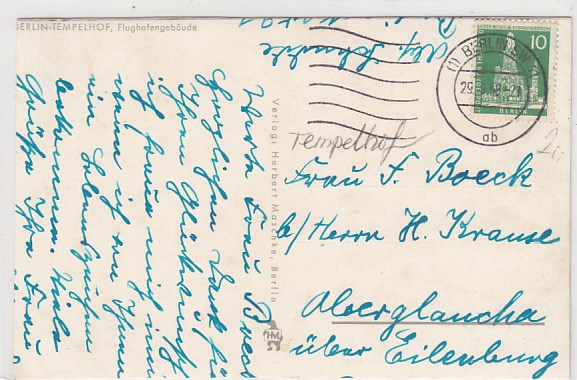 BERLIN-TEMPELHOF, Flughafengebäude
Abs. Schmidt
Werte Frau Boeck
herzlichen Dank für
Ihren Glückwunsch
ich freue mich immer
wenn ich von Ihnen
ein Lebenszeichen
bekomme. Viele
Grüße Ihre Frau
Verlag: Herbert Maschke, Berlin
HM
10
BERLIN
(1) BERLIN SW
29.
ab
Tempelhof
Frau F. Boeck
b/Herrn H. Krause
Oberglaucha
über Eilenburg